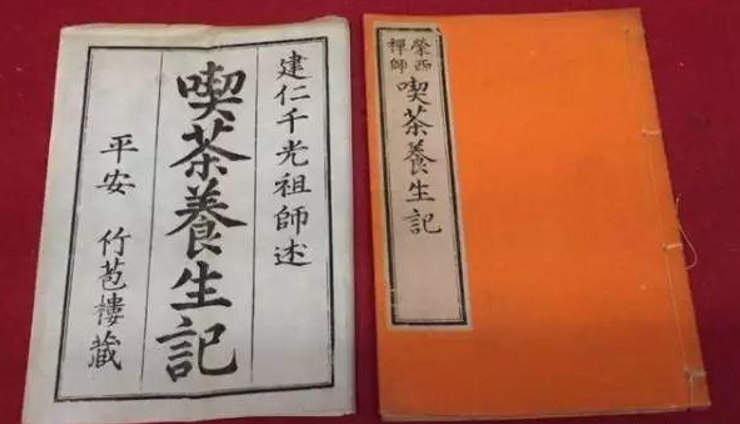 建仁千光祖師述
喫茶養生記
平安 竹苞樓藏
榮西
禪師
喫茶養生記